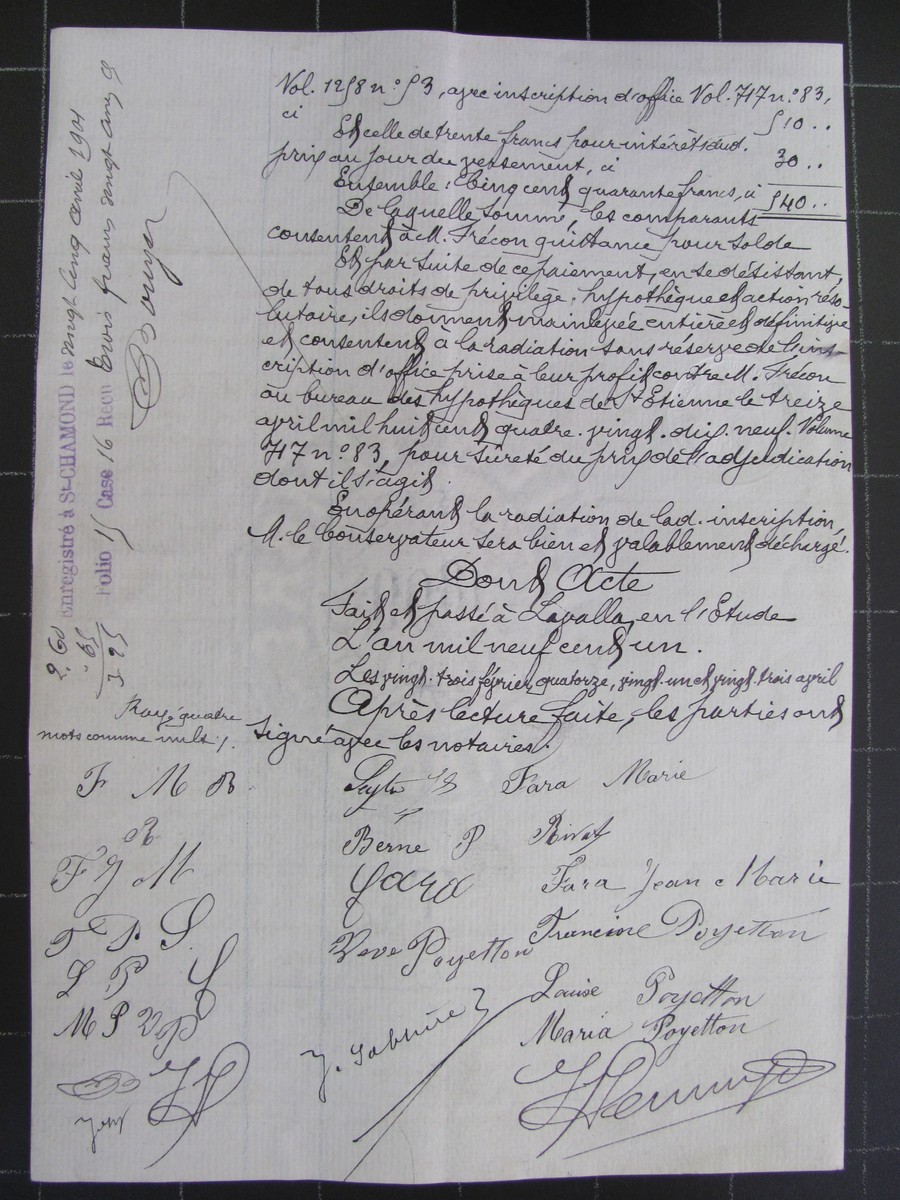 Vol. 1258 n.º 53, avec inscription d'office Vol. 717 n.º 83,
ci 510..
Et celle de trente francs pour intérêts dud.
prix au jour du versement, ci 30..
Ensemble: Cinq cent quarante francs, ci 540..
De laquelle somme, les comparants
consentent à M. Frécon quittance pour solde
Et par suite de ce paiement, en se désistant,
de tous droits de privilège, hypothèque et action réso-
lutoire, ils donnent mainlevée entière et définitive
et consentent à la radiation sans réserve de l'ins-
cription d'office prise à leur profit contre M. Frécon
au bureau des hypothèques de St Etienne le treize
avril mil huit cent quatre. vingt. dix. neuf. Volume
717 n.º 83, pour sûreté du prix de l'adjudication
dont il s'agit.
En opérant la radiation de lad. inscription,
M. le Conservateur sera bien et valablement déchargé.
Dont Acte
Fait et passé à Lavalla, en l'Etude
L'an mil neuf cent un.
Les vingt. trois février, quatorze, vingt. un et vingt. trois avril
Après lecture faite, les parties ont
signé avec les notaires.
Fara Marie
Berne P Rivat
Fara Fara Jean Marie
Veve Poyetton Francine Poyetton
Louise Poyetton
Maria Poyetton
Enregistré à St-CHAMOND le vingt cinq avril 1901
Folio 15 Case 16 Reçu trois francs vingt cinq c
2.60
.65
3.25
Rayé quatre
mots comme nuls ./.
F M R
R
F J M
F P S.
L P
M P V P